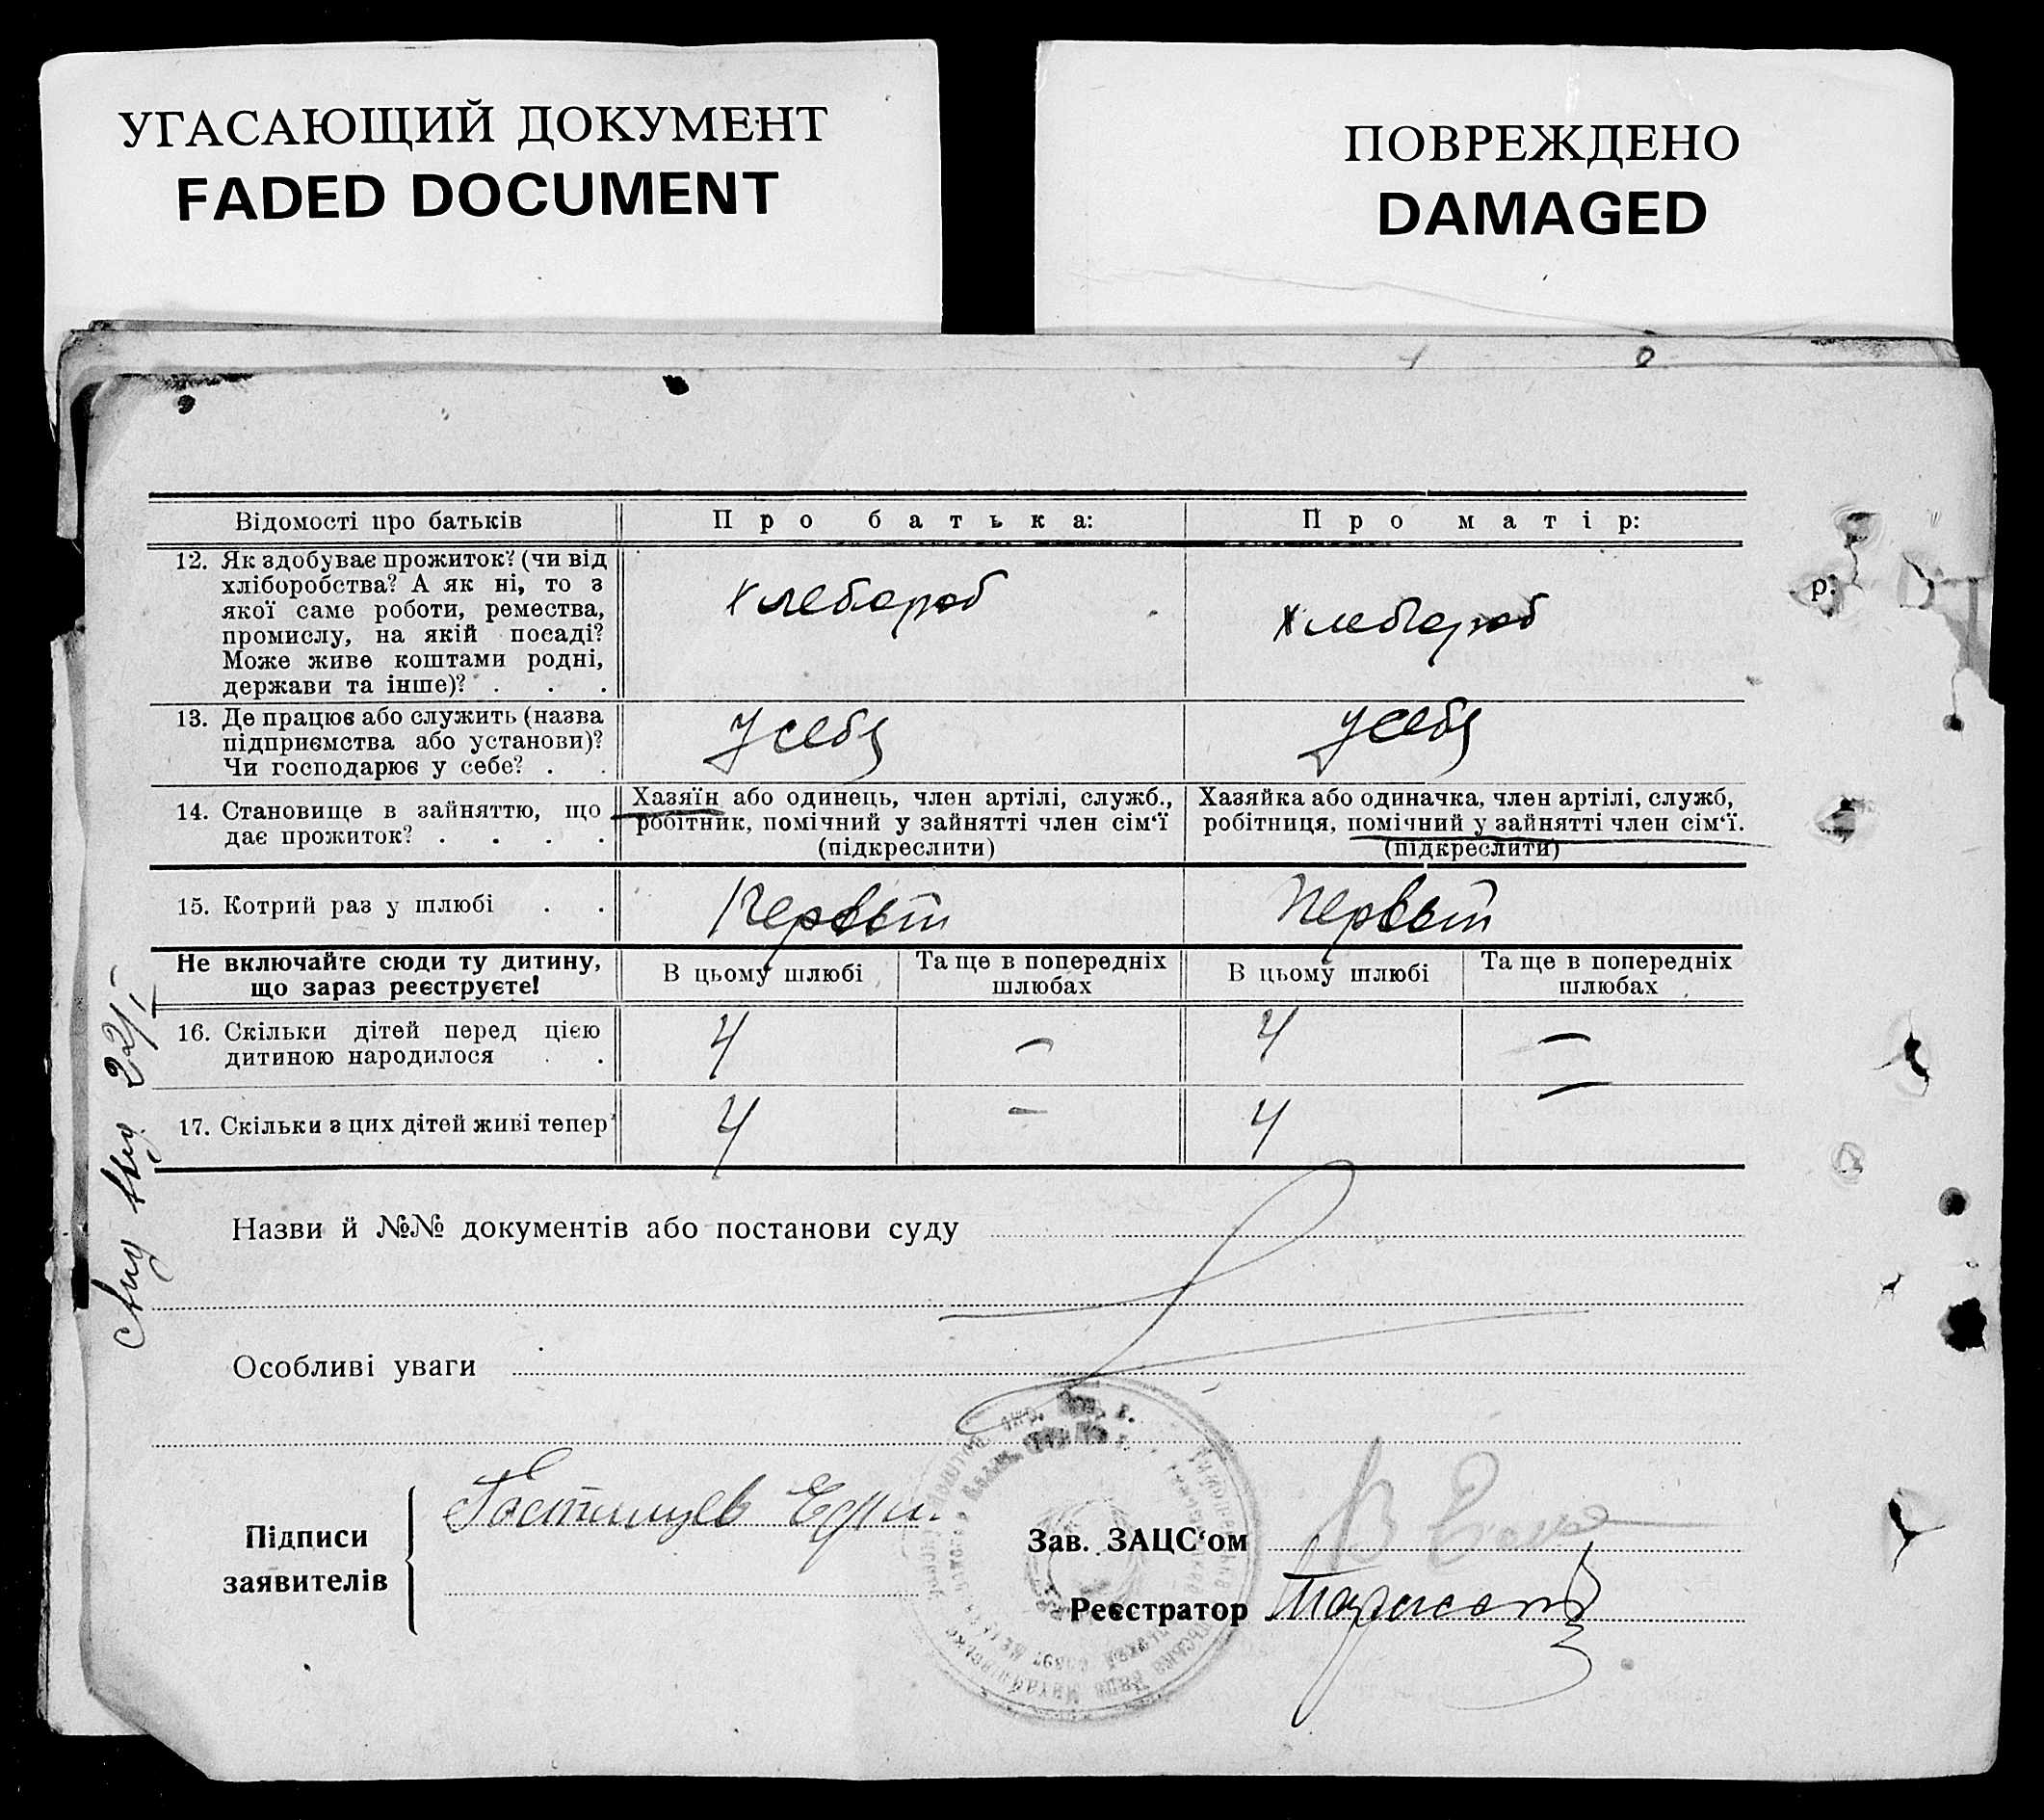 УГАСАЮЩИЙ ДОКУМЕНТ
FADED DOCUMENT
ПОВРЕЖДЕНО
DAMAGED
Відомості про батьків
Про батька:
Про матір:
12. Як здобуває прожиток? (чи від
хліборобства? А як ні, то з
якої саме роботи, ремества,
промислу, на якій посаді?
Може живе коштами родні,
держави та інше)? . . .
хлебороб
хлебороб
р:
13. Де працює або служить (назва
підприємства або установи)?
Чи господарює у себе? . .
У себя
У себя
14. Становище в зайняттю, що
дає прожиток? . . . .
Хазяїн або одинець, член артілі, служб.,
робітник, помічний у зайнятті член сім‘ї
(підкреслити)
Хазяйка або одиначка, член артілі, служб,
робітниця, помічний у зайнятті член сім‘ї.
(підкреслити)
15. Котрий раз у шлюбі . .
Первый
Первый
Не включайте сюди ту дитину,
що зараз реєструєте!
В цьому шлюбі
Та ще в попередніх
шлюбах
В цьому шлюбі
Та ще в попередніх
шлюбах
16. Скільки дітей перед цією
дитиною народилося . .
4
—
4
—
17. Скільки з цих дітей живі тепер
4
-
4
—
Назви й №№ документів або постанови суду
Особливі уваги
Підписи
заявителів
Зав. ЗАЦС‘ом
Реєстратор